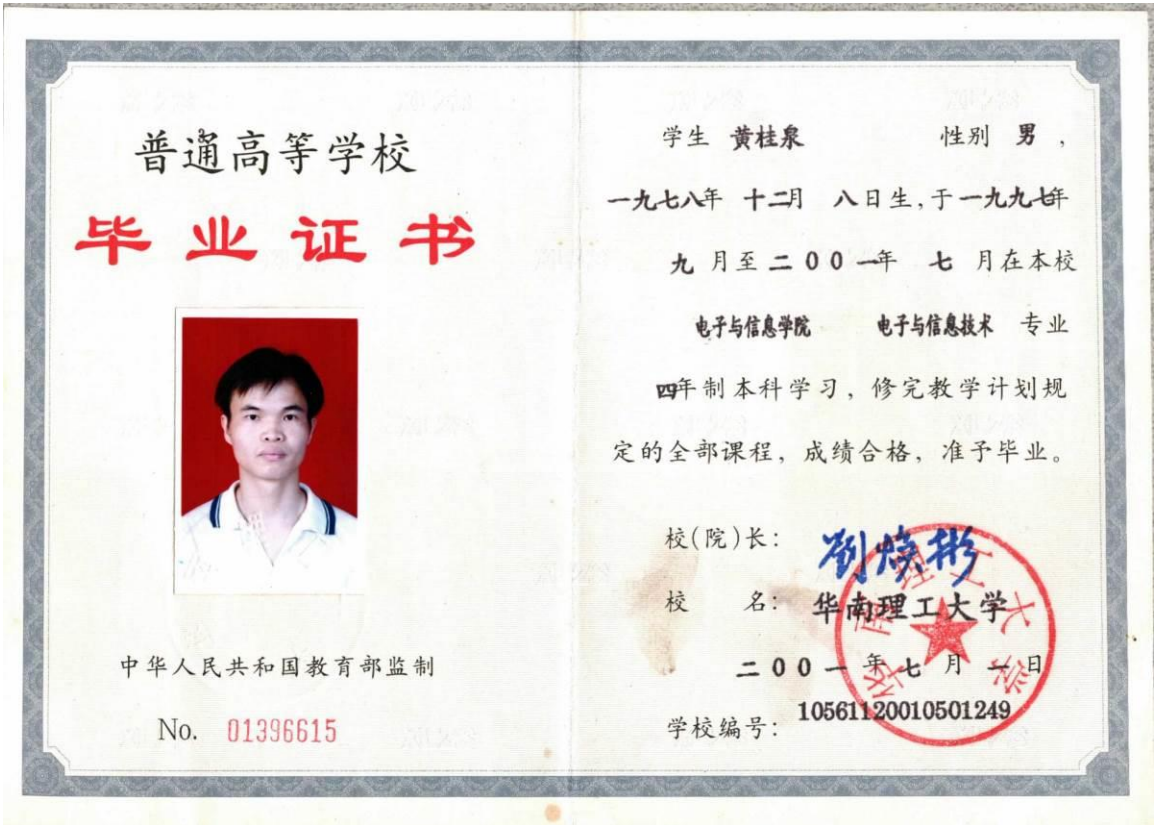 普通高等学校
毕业证书
中华人民共和国教育部监制
No. 01396615
学生 黄桂泉 性别 男，
一九七八年 十二月 八日生，于一九九七年
九 月至二00一年 七 月在本校
电子与信息学院 电子与信息技术 专业
四年制本科学习，修完教学计划规
定的全部课程，成绩合格，准予毕业。
校(院)长： 劉焕彬
校 名： 华南理工大学
二00一年七月一日
学校编号： 10561120010501249
华南理工大学